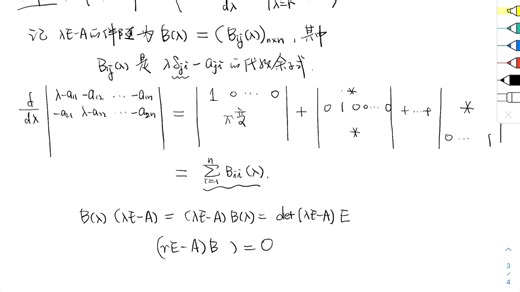 dλ |λ=k
记 λE-A的伴随为 B(λ) = (B_ij(λ))_{n×n}, 其中
B_ij(λ) 是 λδ_ji - a_ji 的代数余子式.
d/dλ | λ-a_11 -a_12 ⋯ -a_1n ; -a_21 λ-a_22 ⋯ -a_2n | = | 1 0 ⋯ 0 ; 不变 | + | * ; 0 1 0 0 ⋯ 0 ; * | + ⋯ + | * ; 0 ⋯ 1 |
= Σ_{i=1}^{n} B_ii(λ).
B(λ) (λE-A) = (λE-A) B(λ) = det(λE-A) E
(rE-A)B ) = 0
3
4